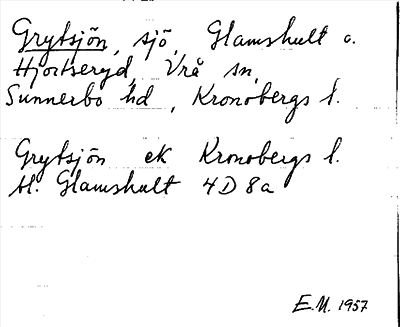 Grytsjön, sjö, Glamshult o.
Hjortseryd, Vrå sn,
Sunnerbo hd, Kronobergs l.
Grytsjön ek Kronobergs l.
Bl. Glamshult 4D 8a
E.M. 1957